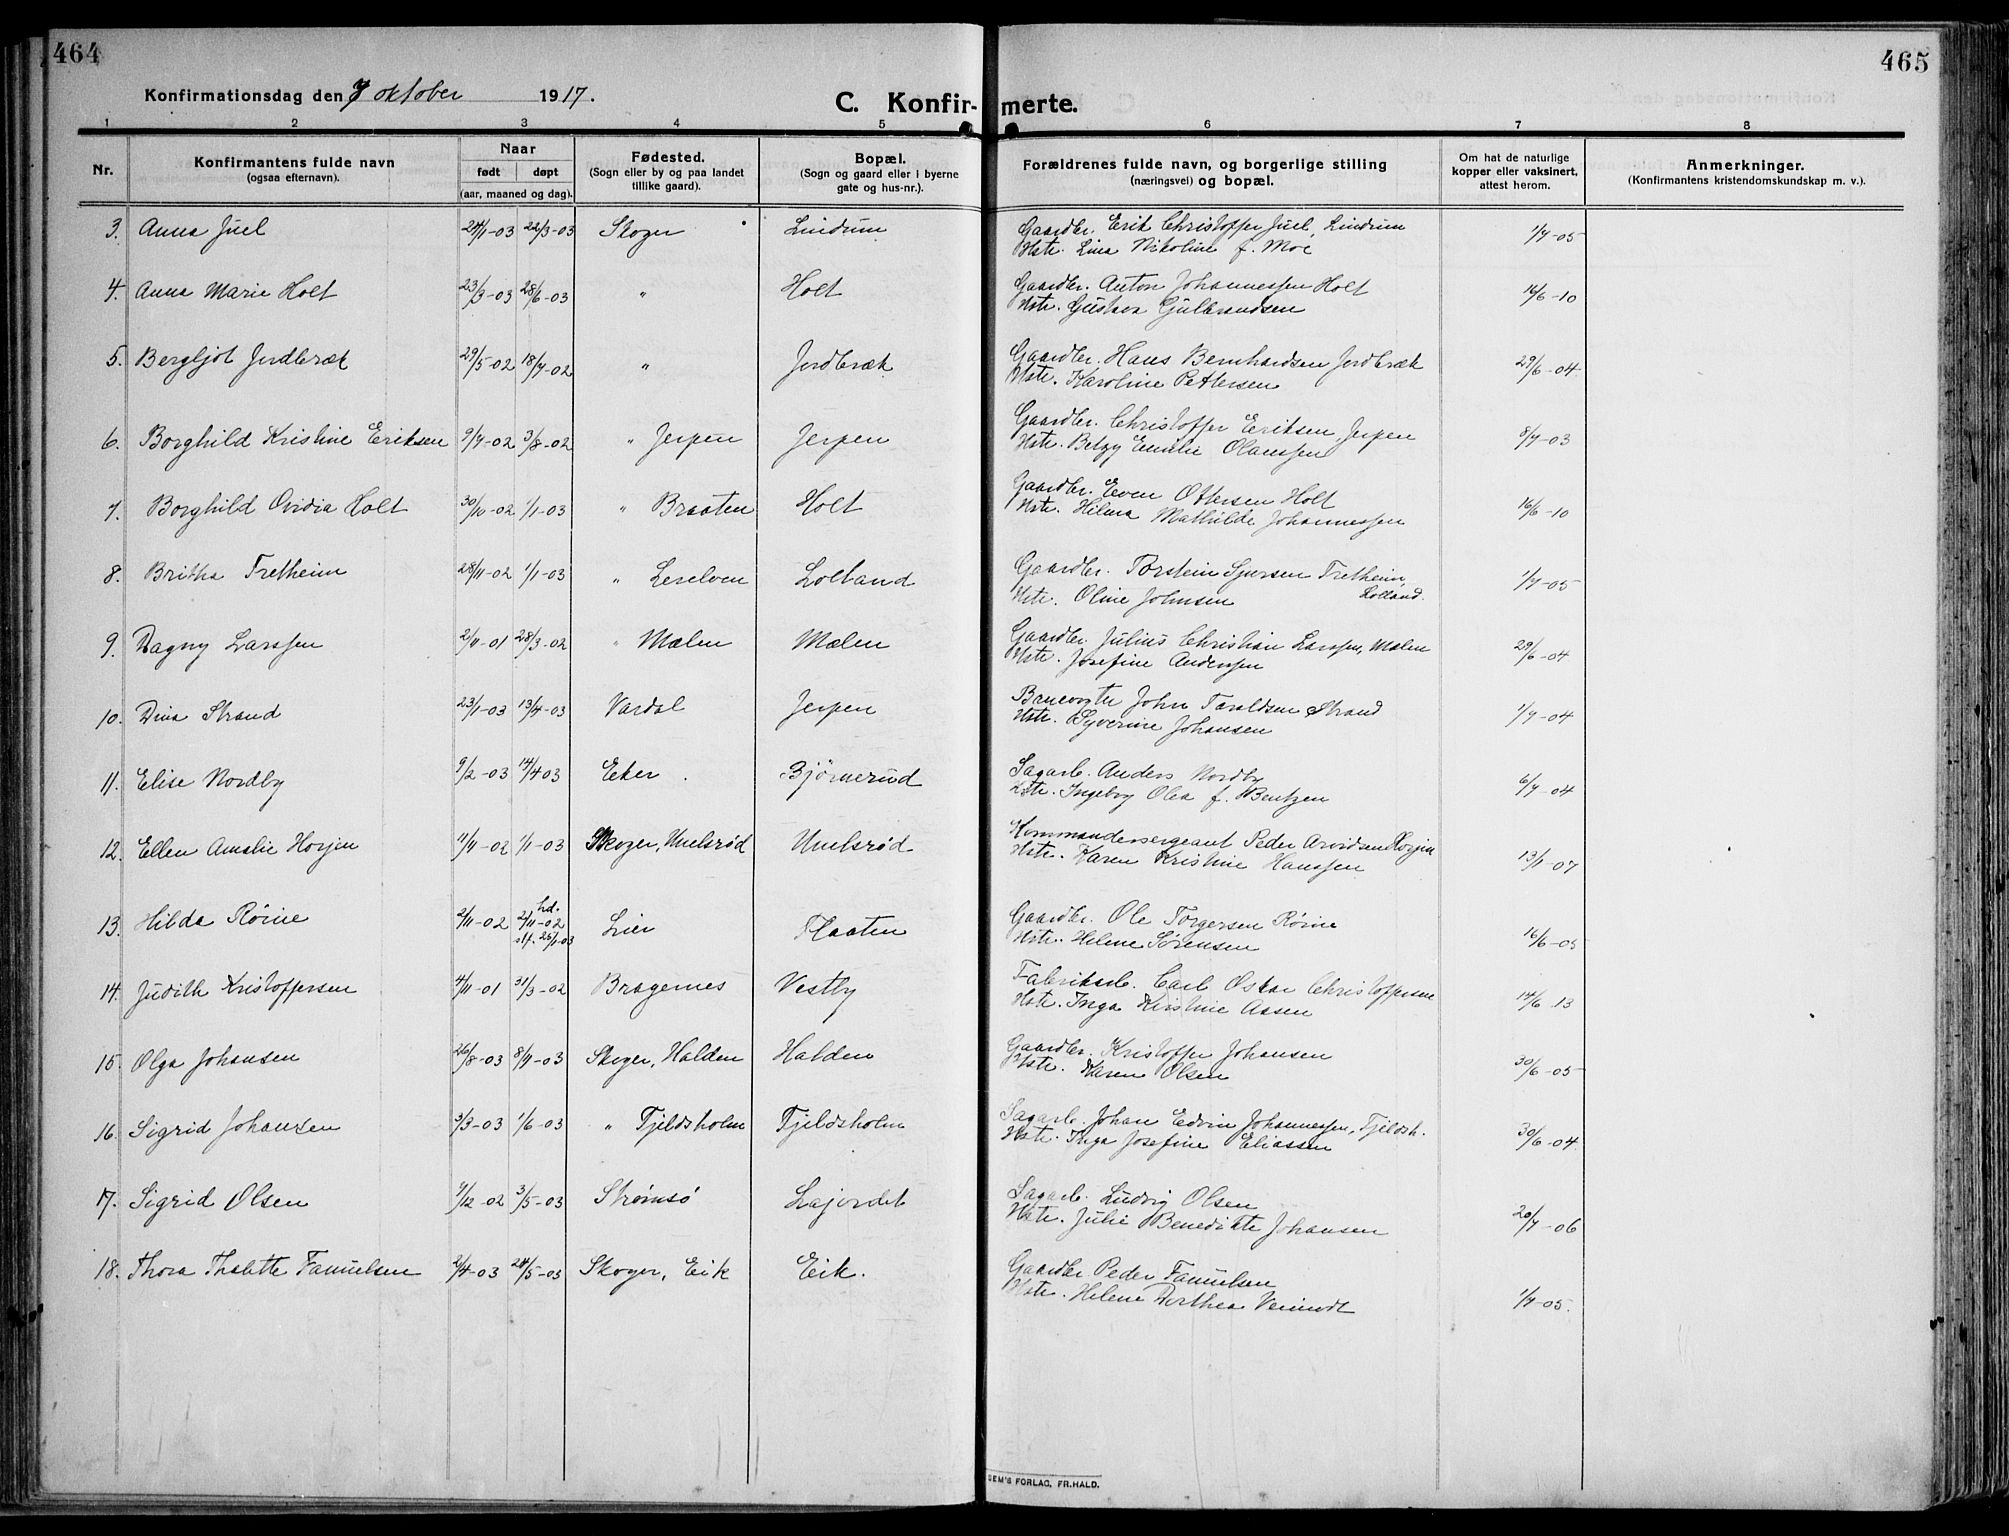 464
465
Konfirmationsdag den 7 oktober 1917.
C. Konfirmerte.
1 2 3 4 5 6 7 8
Nr.
Konfirmantens fulde navn
(ogsaa efternavn).
Naar
født døpt
(aar, maaned og dag).
Fødested.
(Sogn eller by og paa landet
tillike gaard).
Bopæl.
(Sogn og gaard eller i byerne
gate og hus-nr.).
Forældrenes fulde navn, og borgerlige stilling
(næringsvei) og bopæl.
Om hat de naturlige
kopper eller vaksinert,
attest herom.
Anmerkninger.
(Konfirmantens kristendomskundskap m. v.).
3. Anna Juel 24/1-03 22/3-03 Skoger Lindrum Gaardbr. Erik Christoffer Juel, Lindrum 1/7-05
Hstr. Lina Nikoline f. Moe
4. Anna Marie Holt 23/3-03 28/6-03 " Holt Gaardbr. Anton Johannessen Holt 16/6-10
Hstr. Gustava Gulbrandsen
5. Bergljot Jordbræk 29/5-02 18/7-02 " Jordbræk Gaardbr. Hans Bernhardsen Jordbræk 29/6-04
Hstr. Karoline Pettersen
6. Borghild Kristine Eriksen 9/7-02 3/8-02 " Jerpen Jerpen Gaardbr. Christoffer Eriksen, Jerpen 8/7-03
Hstr. Betzy Emilie Olaussen
7. Borghild Ovidia Holt 30/10-02 1/1-03 " Braaten Holt Gaardbr. Even Ottersen Holt 16/6-10
Hstr. Hilma Mathilde Johannessen
8. Britha Tretheim 28/11-02 1/1-03 " Lerelven Lolland Gaardbr. Torstein Sjursen Tretheim, 1/7-05
Hstr. Oline Johnsen Lolland.
9. Dagny Larssen 2/11-01 28/3-02 " Mælen Mælen Gaardbr. Julius Christian Larssen, Mælen 29/6-04
Hstr. Josefine Anderssen
10. Dina Strand 23/1-03 13/4-03 Vardal Jerpen Banevogter John Taraldsen Strand 1/7-04
Hstr. Syverine Johansen
11. Elise Nordby 9/2-03 14/4 03 Eker Bjørnerud Sagarb. Anders Nordby 6/7-04
Hstr. Ingeborg Olea f. Bentzen
12. Ellen Amalie Horjen 11/11-02 1/1-03 Skoger, Unelsrød Unelsrød Kommandersergeant Peder Arvidsen Horjen 13/1-07
Hstr. Karen Kristine Hanssen
13. Hilda Røine 2/11-02 hd. 2/11-02 Lier Flaaten Gaardbr. Ole Torgersen Røine 16/6-05
stf. 25/1-03 Hstr. Helene Sørensen
14. Judith Kristoffersen 4/11-01 31/3-02 Bragernes Vestby Fabrikarb. Carl Oskar Christoffersen 14/6 13
Hstr. Inga Kristine Aasen
15. Olga Johansen 26/8-03 8/11-03 Skoger, Halden Halden Gaardbr. Kristoffer Johansen 30/6-05
Hstr. Karen Olsen
16. Sigrid Johansen 3/3-03 1/6-03 " Fjeldsholm Fjeldsholm Sagarb. Johan Edvin Johannessen, Fjeldsh. 30/6-04
Hstr. Inga Josefine Eliassen
17. Sigrid Olsen 7/12-02 3/5-03 Strømsø Lajordet Sagarb. Ludvig Olsen 20/7-06
Hstr. Julie Benedikte Johansen
18. Thora Thalette Fanuelsen 2/4-03 24/5-03 Skoger, Eik Eik. Gaardbr Peder Fanuelsen 1/7-05.
Hstr. Helene Dorthea
SEM'S FORLAG, FR.HALD.